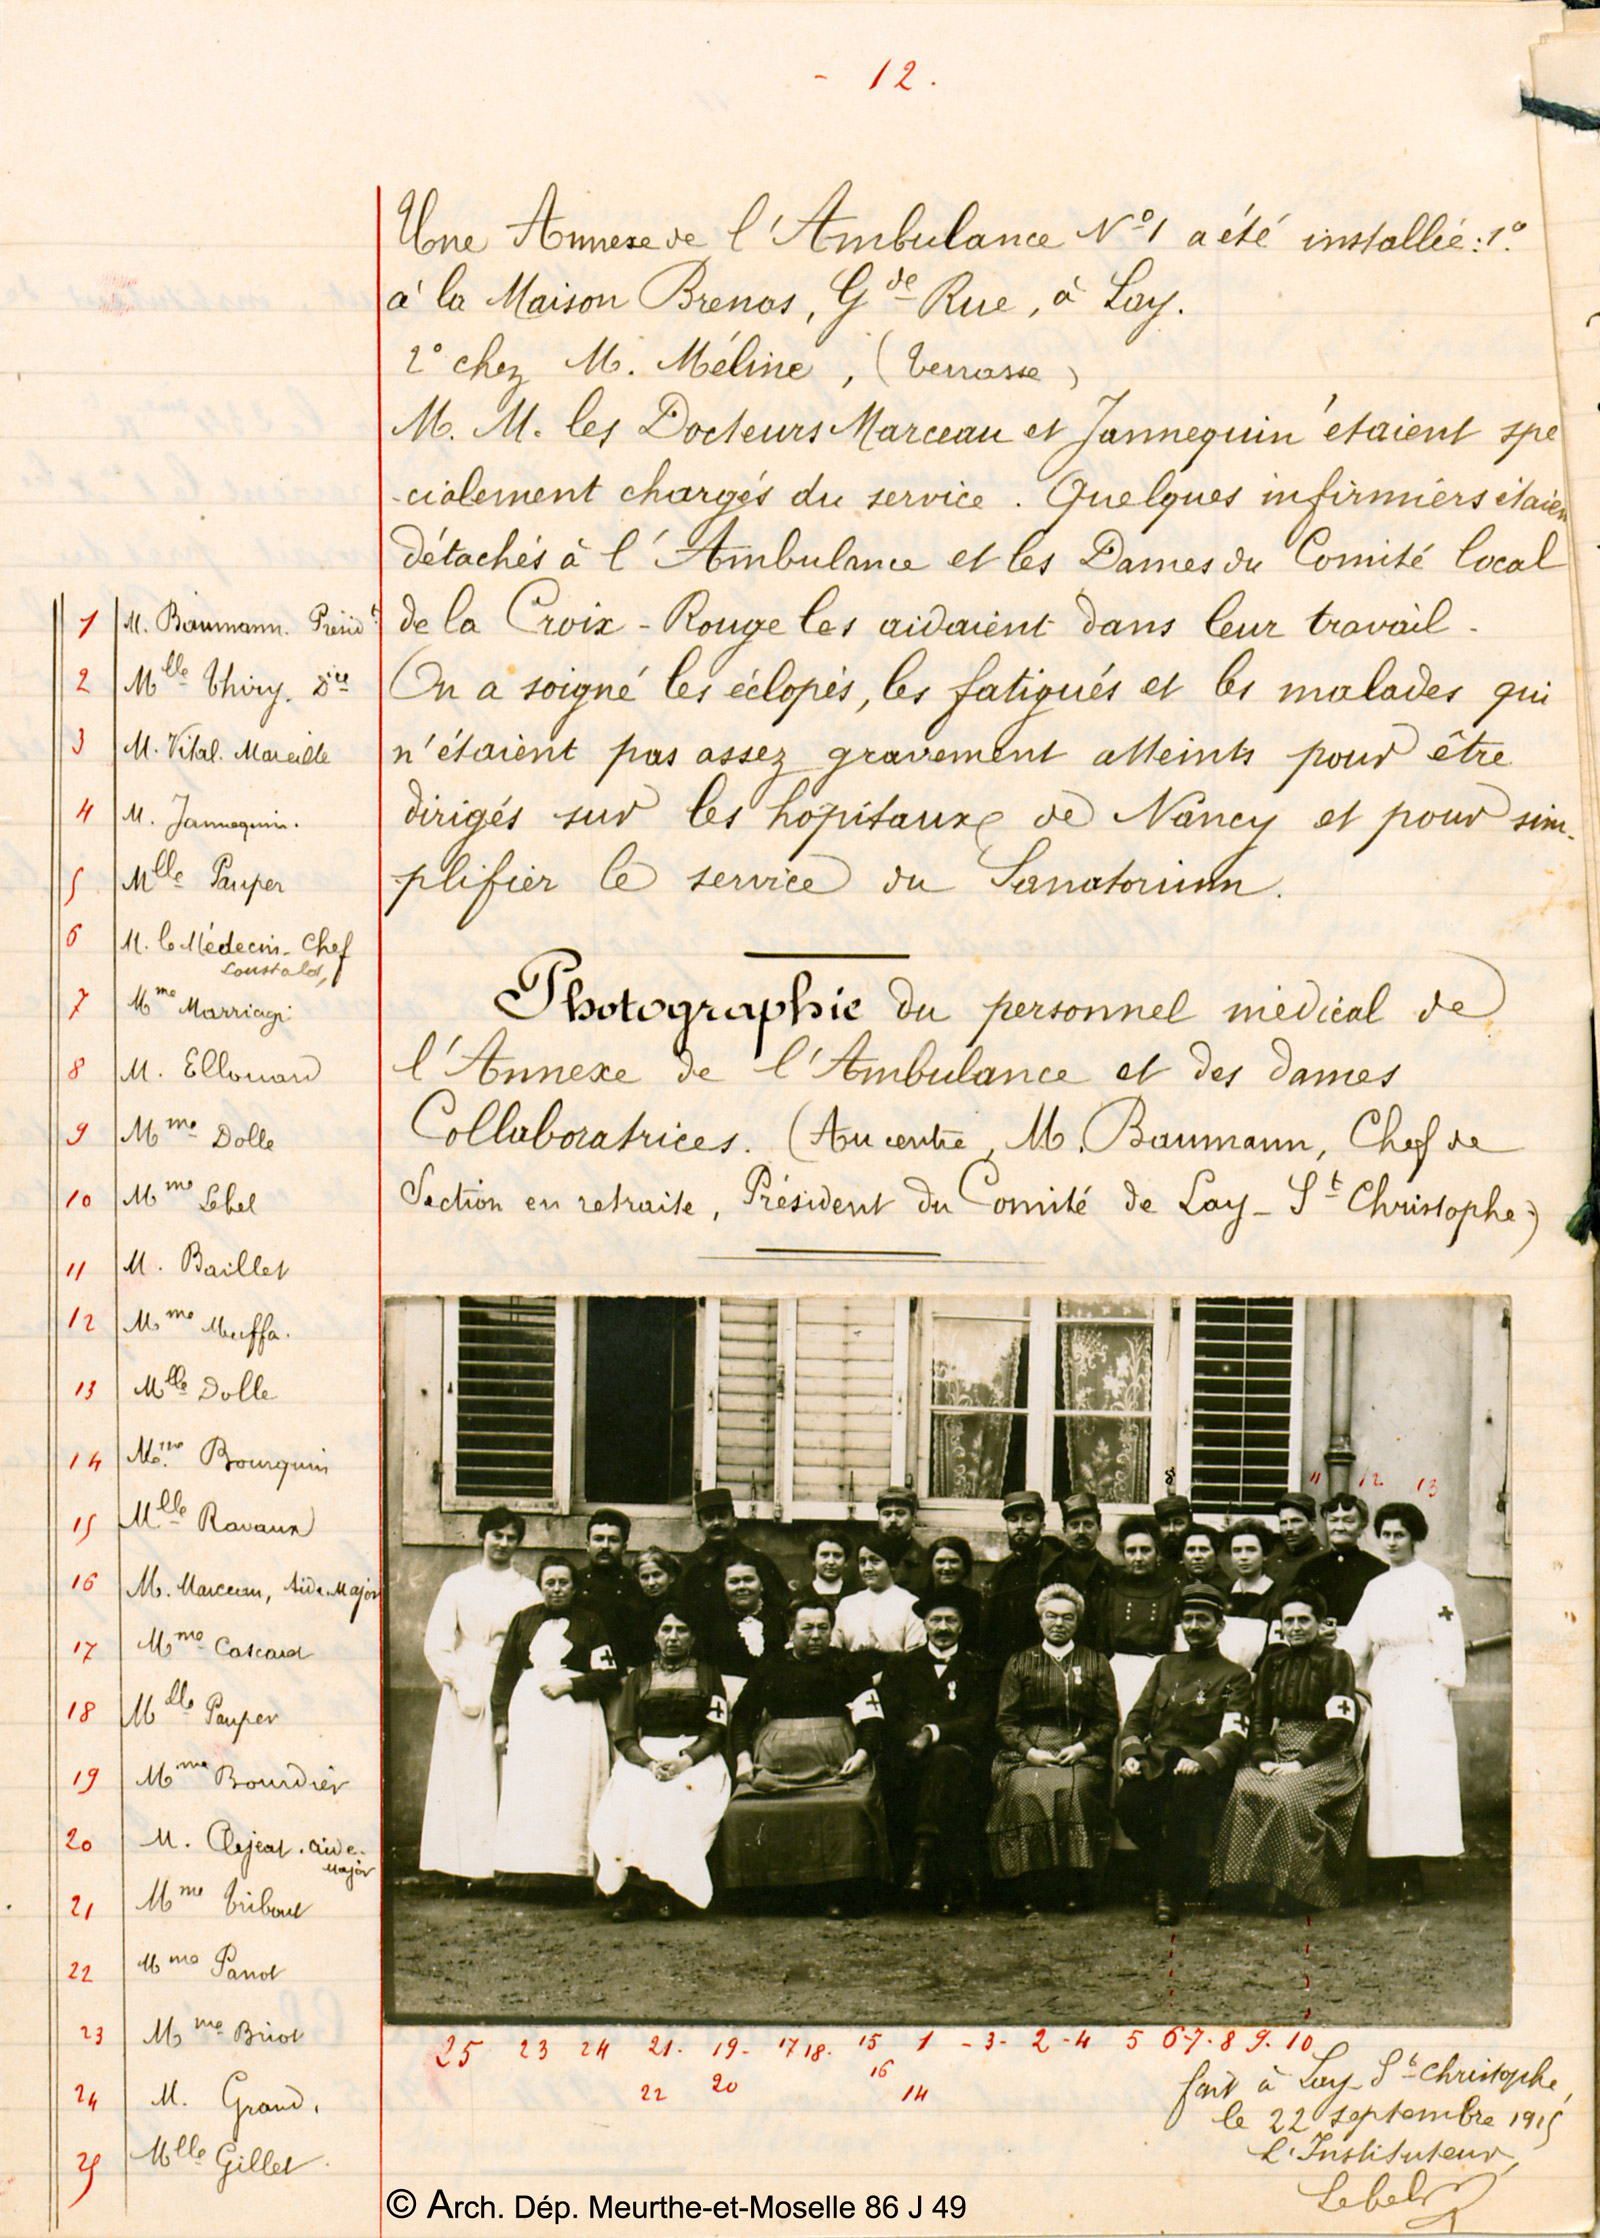 - 12.
Une Annexe de l'Ambulance N° 1 a été installée : 1°
à la Maison Brenas, Gde Rue, à Lay.
2° chez M. Méline, (Terrasse)
M. M. les Docteurs Marceau et Jannequin étaient spé
-cialement chargés du service. Quelques infirmiers étaien
détachés à l'Ambulance et les Dames du Comité local
de la Croix-Rouge les aidaient dans leur travail.
On a soigné les éclopés, les fatigués et les malades qui
n'étaient pas assez gravement atteints pour être
dirigés sur les hôpitaux de Nancy et pour sim-
plifier le service du Sanatorium.
Photographie du personnel médical de
l'Annexe de l'Ambulance et des dames
Collaboratrices. (Au centre, M. Baumann, Chef de
Section en retraite, Président du Comité de Lay-St Christophe.)
1 M. Baumann. Présidt
2 Mlle Thiry. Dice
3 M. Vital. Mareille
4 M. Jannequin.
5 Mlle Pauper
6 M. le Médecin-Chef
7 Mme Marriagi
8 M. Ellouard
9 Mme Dolle
10 Mme Lebel
11 M. Baillet
12 Mme Muffa.
13 Mlle Dolle
14 Mme Bourquin
15 Mlle Ravaux
16 M. Marceau, Aide-Major
17 Mme Cascard
18 Mlle Pauper
19 Mme Bourdier
20 M. Clejeat. aide-
major
21 Mme Tribout
22 Mme Panot
23 Mme Briot
24 M. Grand.
25 Mlle Gillet.
8 11 12 13
25 23 24 21. 19- 17 18. 15 1 - 3 - 2 - 4 5 6-7-8 9. 10
22 20 16 14
fait à Lay-St Christophe,
le 22 septembre 1915
L'Instituteur,
Lebel
© Arch. Dép. Meurthe-et-Moselle 86 J 49